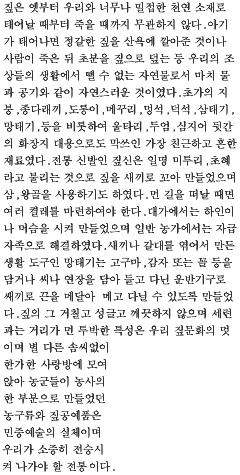 짚은 옛부터 우리와 너무나 밀접한 천연 소재로
태어날 때부터 죽을 때까지 무관하지 않다.아기
가 태어나면 정갈한 짚을 산욕에 깔아준 것이나
사람이 죽은 뒤 초분을 짚으로 덮는 등 우리의 조
상들의 생활에서 뺄 수 없는 자연물로서 마치 물
과 공기와 같이 자연스러운 것이었다.초가의 지
붕,종다래끼,도롱이,메꾸리,멍석,덕석,삼태기,
망태기,등을 비롯하여 울타리,두엄,심지어 뒷간
의 화장지 대용으로도 막쓰인 가장 친근하고 흔한
재료였다.전통 신발인 짚신은 일명 미투리,초혜
라고 불리는 것으로 짚을 새끼로 꼬아 만들었으며
삼,왕골을 사용하기도 하였다.먼 길을 떠날 때면
여러 켤레를 마련하여야 한다.대가에서는 하인이
나 머슴을 시켜 만들었으며 일반 농가에서는 자급
자족으로 해결하였다.새끼나 갈대를 엮어서 만든
생활 도구인 망태기는 고구마,감자 또는 꼴 등을
담거나 씨나 연장을 담아 들고 다닌 운반기구로
쌔끼로 끈을 메달아 메고 다닐 수 있도록 만들었
다.짚의 그 거칠고 성글고 깨끗하지 않으며 세련
과는 거리가 먼 투박한 특성은 우리 짚문화의 멋
이며 별 다른 솜씨없이
한가한 사랑방에 모여
앉아 농군들이 농사의
한 부분으로 만들었던
농구류와 짚공예품은
민중예술의 실체이며
우리가 소중히 전승시
켜 나가야 할 전통이다.